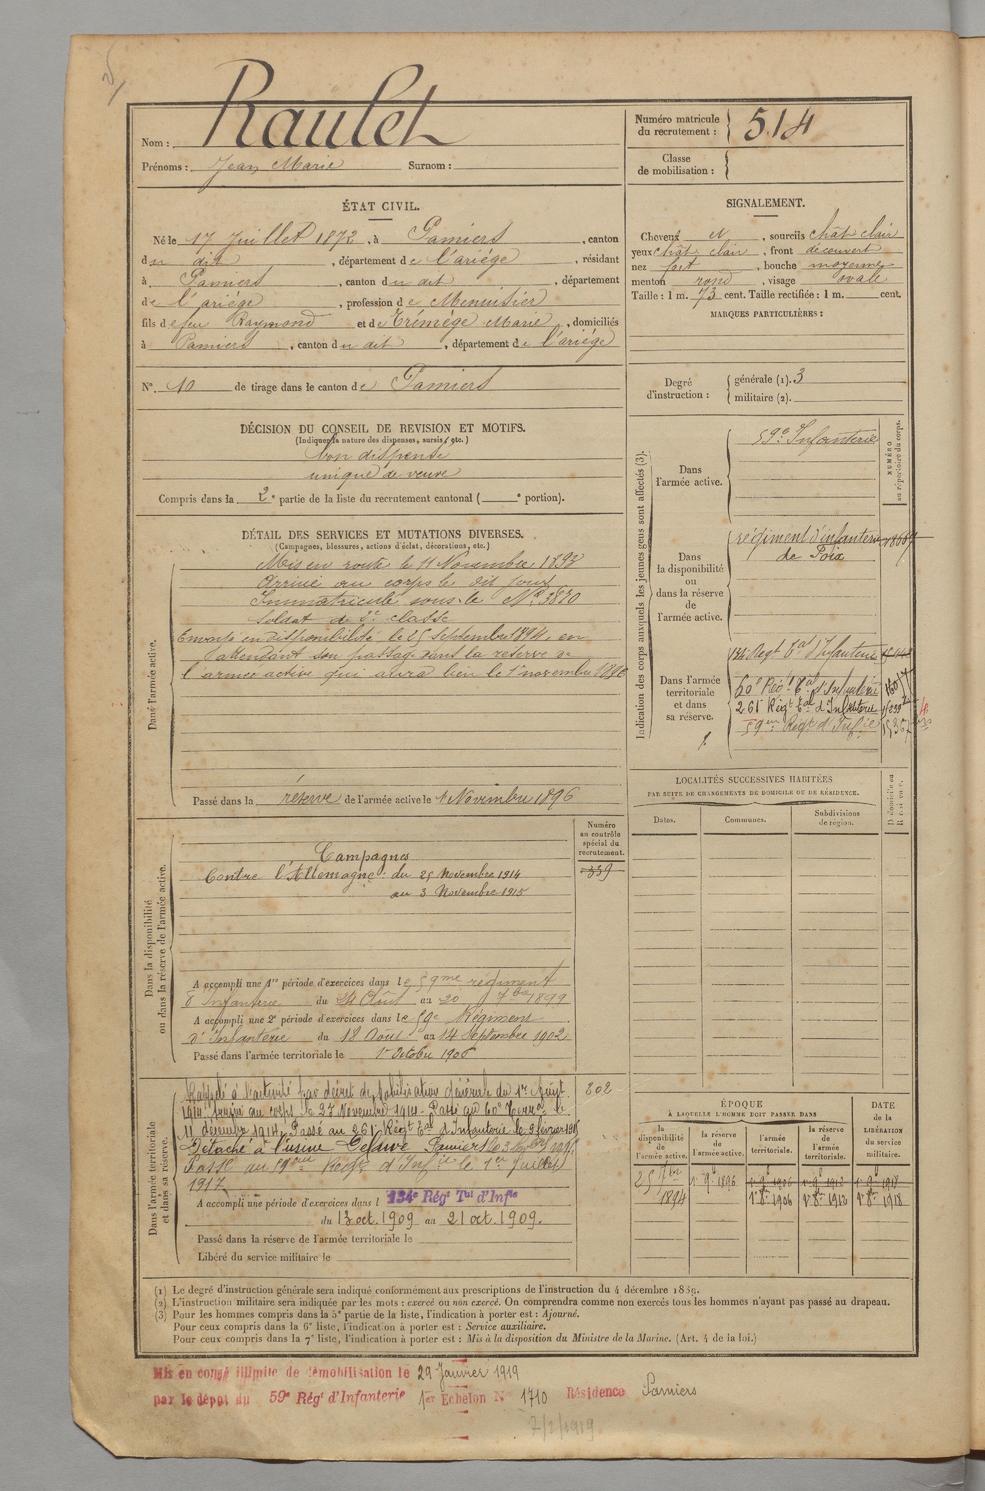 Nom : Raulet
Prénoms : Jean Marie Surnom :
Numéro matricule du recrutement : 514
Classe de mobilisation :
ÉTAT CIVIL.
Né le 17 Juillet 1872, à Pamiers, canton
du dit, département de l'ariége, résidant
à Pamiers, canton du dit, département
de l'ariége, profession de Menuisier
fils de feu Raymond et de Trémége Marie, domiciliés
à Pamiers, canton du dit, département de l'ariége
N° 10 de tirage dans le canton de Pamiers
DÉCISION DU CONSEIL DE REVISION ET MOTIFS.
(Indiquer la nature des dispenses, sursis, etc.)
bon dispensé
unique de veuve
Compris dans la 2e partie de la liste du recrutement cantonal ( e portion).
SIGNALEMENT.
Cheveux et, sourcils chât clair
yeux chât clair, front découvert
nez fort, bouche moyenne
menton rond, visage ovale
Taille : 1 m. 73 cent. Taille rectifiée : 1 m. cent.
MARQUES PARTICULIÈRES :
Degré d'instruction : générale (1). 3
militaire (2).
DÉTAIL DES SERVICES ET MUTATIONS DIVERSES.
(Campagnes, blessures, actions d'éclat, décorations, etc.)
Dans l'armée active.
Mis en route le 11 Novembre 1893
Arrivé au corps le dit jour
Immatriculé sous le No 3870
Soldat de 2e classe
Envoyé en disponibilité le 25 septembre 1894, en
attendant son passage dans la réserve de
l'armée active qui aura lieu le 1er novembre 1896
Passé dans la réserve de l'armée active le 1 Novembre 1896
Indication des corps auxquels les jeunes gens sont affectés (3).
NUMÉRO au répertoire du corps.
Dans l'armée active.
59e Infanterie
Dans la disponibilité ou dans la réserve de l'armée active.
régiment d'infanterie
de Foix
Dans l'armée territoriale et dans sa réserve.
134 Régt Tal d'Infanterie
60e Régt Tal d'Infanterie
261e Régt Tal d'Infanterie
59eme Régt d'Infie
LOCALITÉS SUCCESSIVES HABITÉES
PAR SUITE DE CHANGEMENTS DE DOMICILE OU DE RÉSIDENCE.
Dates. Communes. Subdivisions de région. D. domicile ou R. résidence.
Dans la disponibilité ou dans la réserve de l'armée active.
Numéro au contrôle spécial du recrutement.
339
Campagnes
Contre l'Allemagne : du 25 Novembre 1914
au 3 Novembre 1915
A accompli une 1re période d'exercices dans le 59me régiment
d'Infanterie du 24 Août au 20 7bre 1899
A accompli une 2e période d'exercices dans le 59e Régiment
d'Infanterie du 18 Août au 14 Septembre 1902
Passé dans l'armée territoriale le 1er Octobre 1906
Dans l'armée territoriale et dans sa réserve.
802
Rappelé à l'activité par décret de Mobilisation Générale du 1er Août
1914. Arrivé au corps le 27 Novembre 1914. Passé au 60e Terral le
11 décembre 1914. Passé au 261 Régt Tal d'Infanterie le 9 février 1915
Détaché à l'usine Pamiers le 3 1915
Passé au 59eme Régt d'Infie le 1er Juillet
1917
A accompli une période d'exercices dans l 134e Régt Tal d'Infie
du 13 oct. 1909 au 21 oct. 1909.
Passé dans la réserve de l'armée territoriale le
Libéré du service militaire le
ÉPOQUE
À LAQUELLE L'HOMME DOIT PASSER DANS
DATE de la LIBÉRATION du service militaire.
la disponibilité de l'armée active. la réserve de l'armée active. l'armée territoriale. la réserve de l'armée territoriale.
25 7bre 1894 1er 9 1896 1er 9 1906 1er 9 1912 1er 9 1918
1er 8bre 1906 1er 8bre 1912 1er 8bre 1918
(1) Le degré d'instruction générale sera indiqué conformément aux prescriptions de l'instruction du 4 décembre 1889.
(2) L'instruction militaire sera indiquée par les mots : exercé ou non exercé. On comprendra comme non exercés tous les hommes n'ayant pas passé au drapeau.
(3) Pour les hommes compris dans la 5e partie de la liste, l'indication à porter est : Ajourné.
Pour ceux compris dans la 6e liste, l'indication à porter est : Service auxiliaire.
Pour ceux compris dans la 7e liste, l'indication à porter est : Mis à la disposition du Ministre de la Marine. (Art. 4 de la loi.)
Mis en congé illimité de démobilisation le 29 Janvier 1919
par le dépôt du 59e Régt d'Infanterie 1er Echelon N° 1710 Résidence Pamiers
7/2/1919